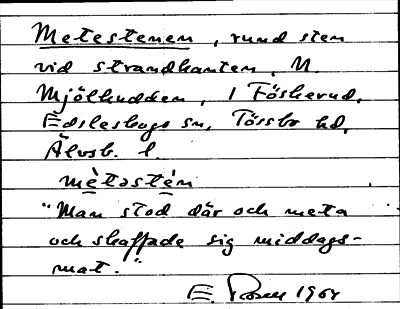 Metestenen, rund sten
vid strandkanten, N.
Mjölkudden, i Föskerud,
Edsleskogs sn, Tössbo hd,
Älvsb. l.
mètəstén
"Man stod där och meta
och skaffade sig middags-
mat."
E. 1964